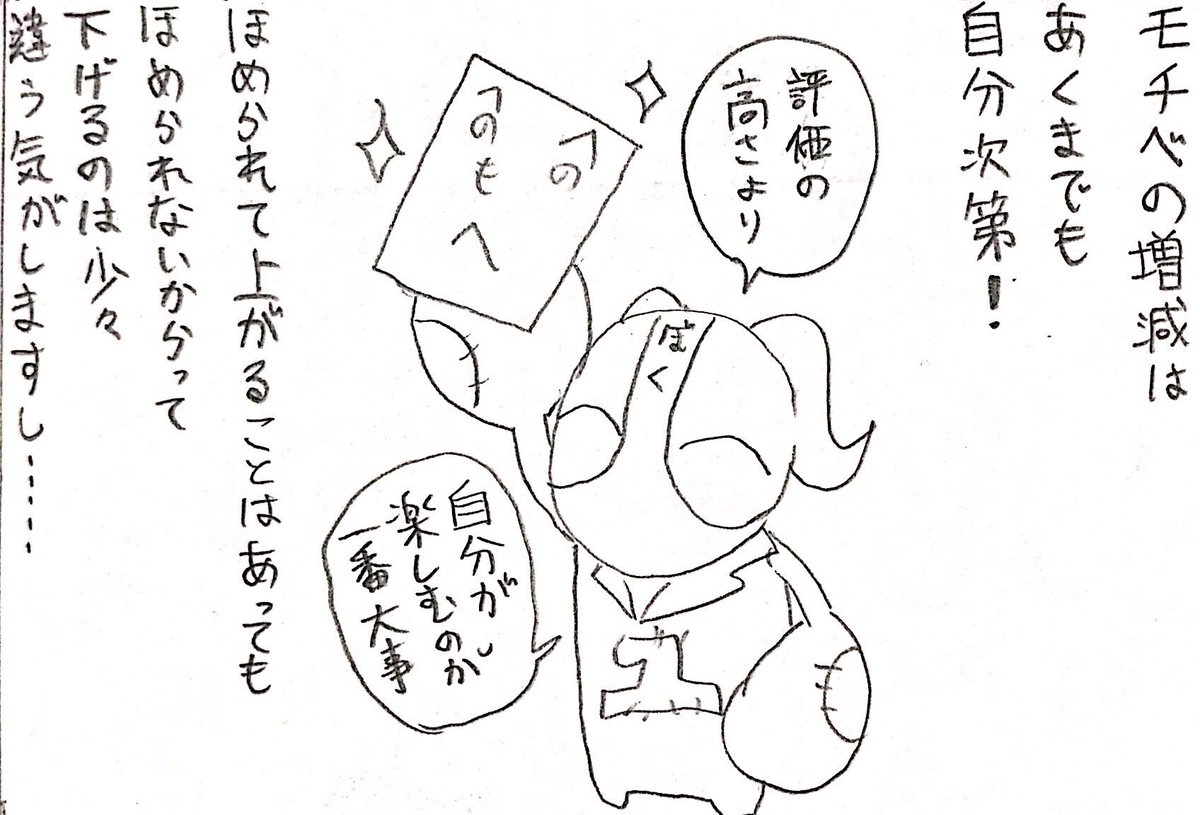 モチベの増減は
あくまでも
自分次第！
評価の
高さより
へのへ
のもへ
ぼく
1
自分が
楽しむのが
一番大事
ほめられて上がることはあっても
ほめられないからって
下げるのは少々
違う気がしますし……